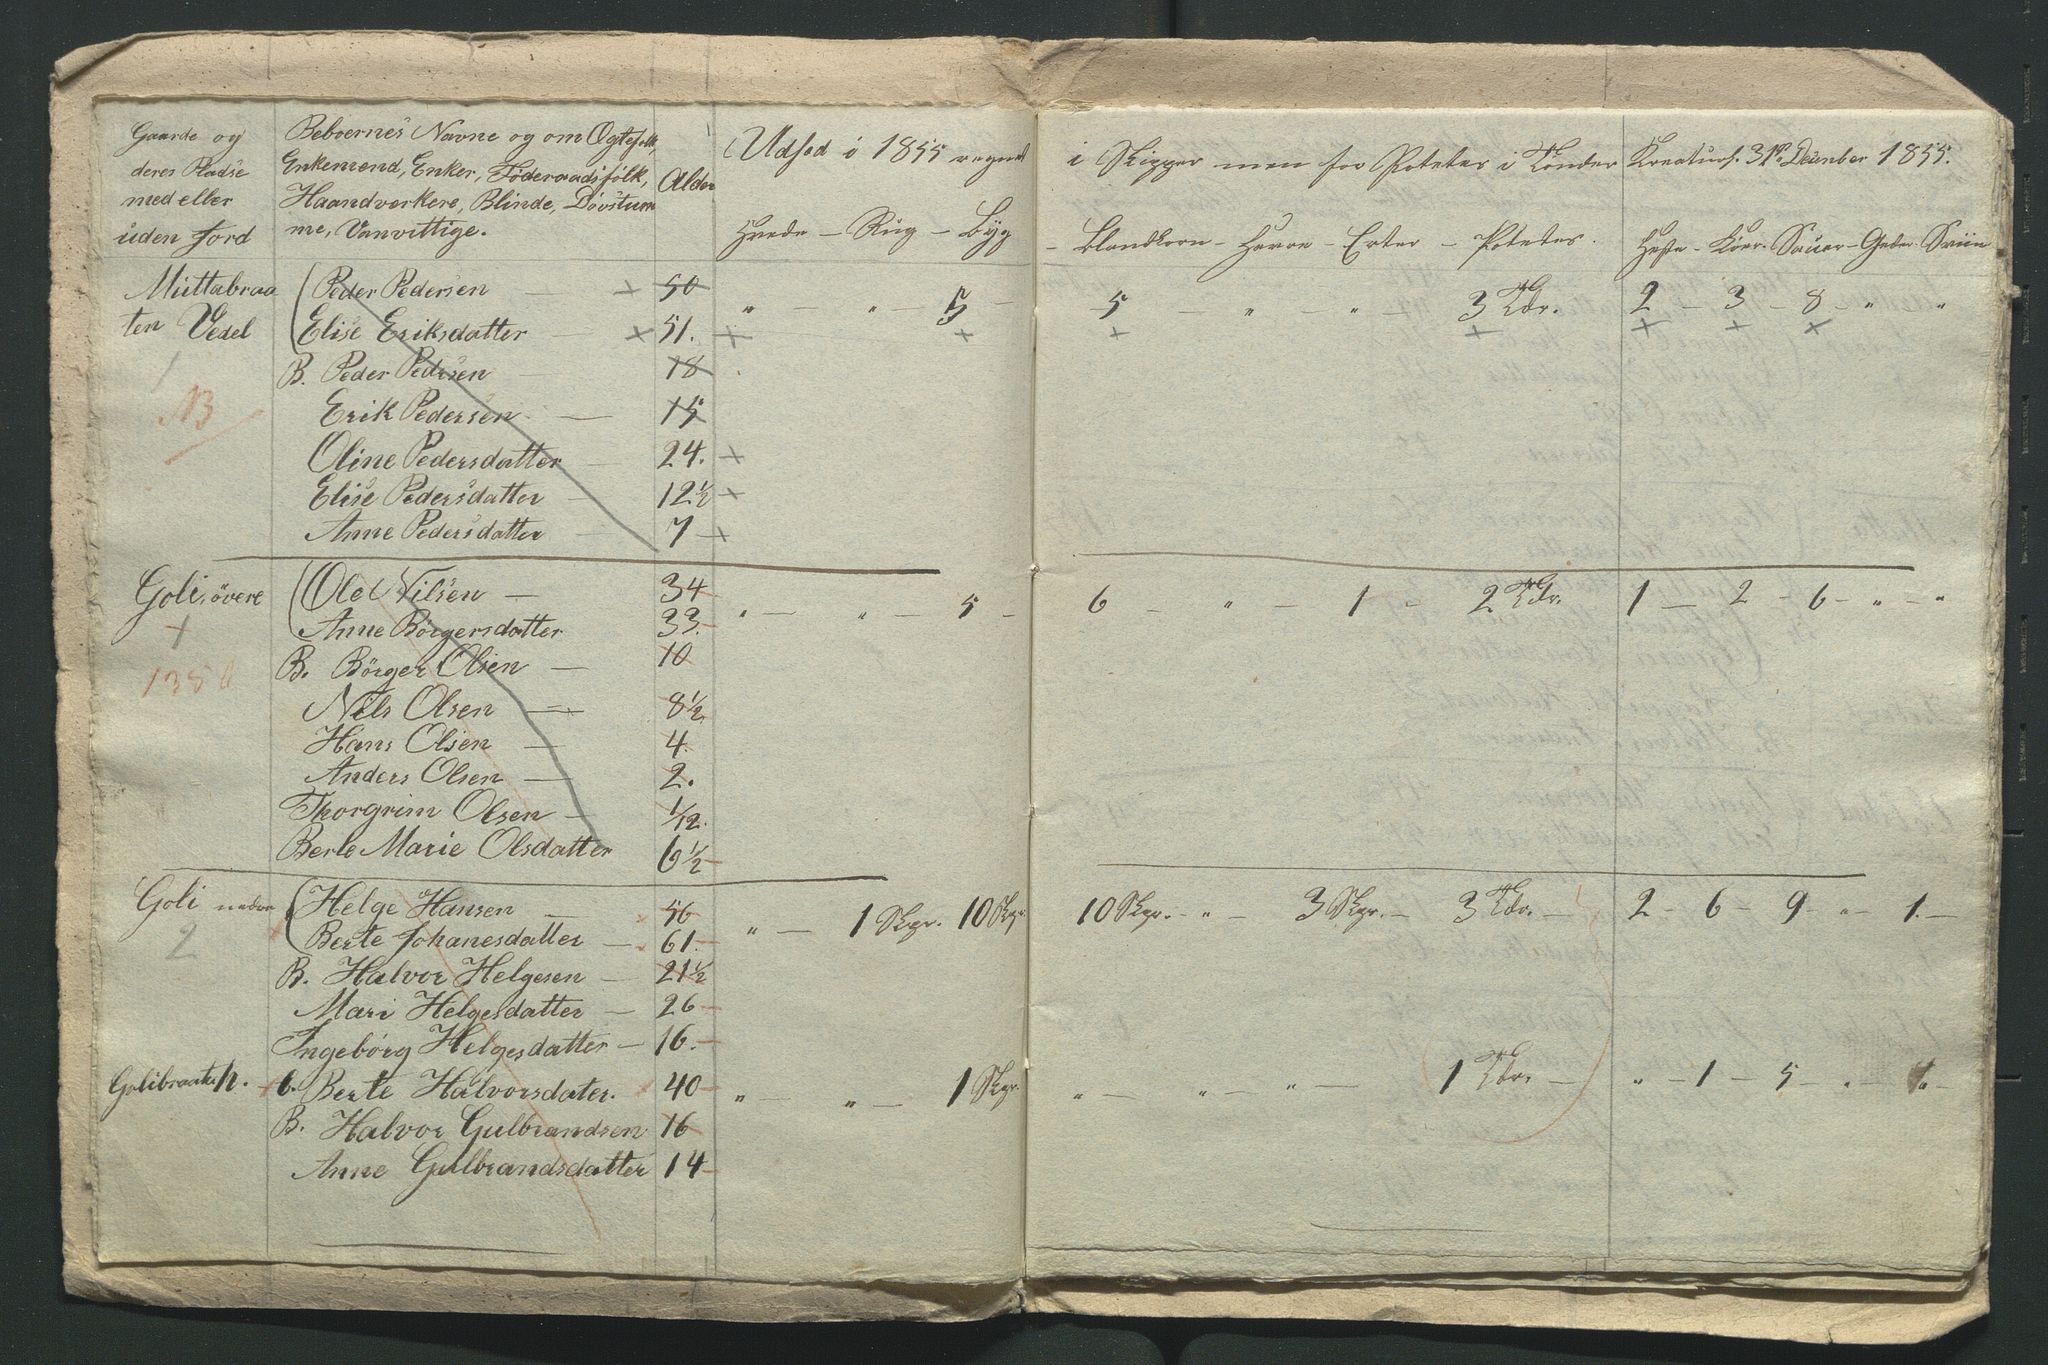 Gaarde og deres Pladse med eller uden Jord
Beboernes Navne og om Ogtefolk, Enkemænd, Enker, Föderaadsfolk, Haandværkere, Blinde, Dövstumme, Vanvittige.
Alder
Udsæd i 1855 regnet i Skjepper men for Poteter i Tönder
Kreaturh. 31te December 1855.
Hvede - Rug - Byg - Blandkorn - Havre - Erter - Poteter.
Heste - Koer - Sauer - Geder - Sviin
Muttabraaten Vedel
Peder Pedersen — 50 " — " — 5 — 5 — " — " — 3 Tdr. 2 — 3 — 8 — " "
Elise Eriksdatter — 51.
B. Peder Pedersen — 18
Erik Pedersen — 15
Oline Pedersdatter — 24.
Elise Pedersdatter — 12½
Anne Pedersdatter — 7
NB
Goli övere
Ole Nilsen — 34 " — " — 5 — 6 — " — 1 — 2 Tdr. 1 — 2 — 6 — " — "
Anne Börgersdatter 33.
B. Börger Olsen — 10
Nils Olsen — 8½
Hans Olsen — 4.
Anders Olsen — 2.
Thorgrim Olsen — 1/12.
Berte Marie Olsdatter 6½
135 b
Goli nedre
2
Helge Hansen — 56 " — 1 Skpr. 10 Skpr. 10 Skpr. — " — 3 Skpr. — 3 Tdr. — 2 — 6 — 9 — " — 1. —
Berte Johanesdatter — 61.
B. Halvor Helgesen — 21½
Mari Helgesdatter — 26
Ingebörg Helgesdatter — 16.
Golibraaten
Berte Halvorsdater. 40 " — " — 1 Skpr. " — " — " — 1 Tdr. — " — 1 — 5 — " — 1 —
B. Halvor Gulbrandsen 16
Anne Gulbrandsdatter 14